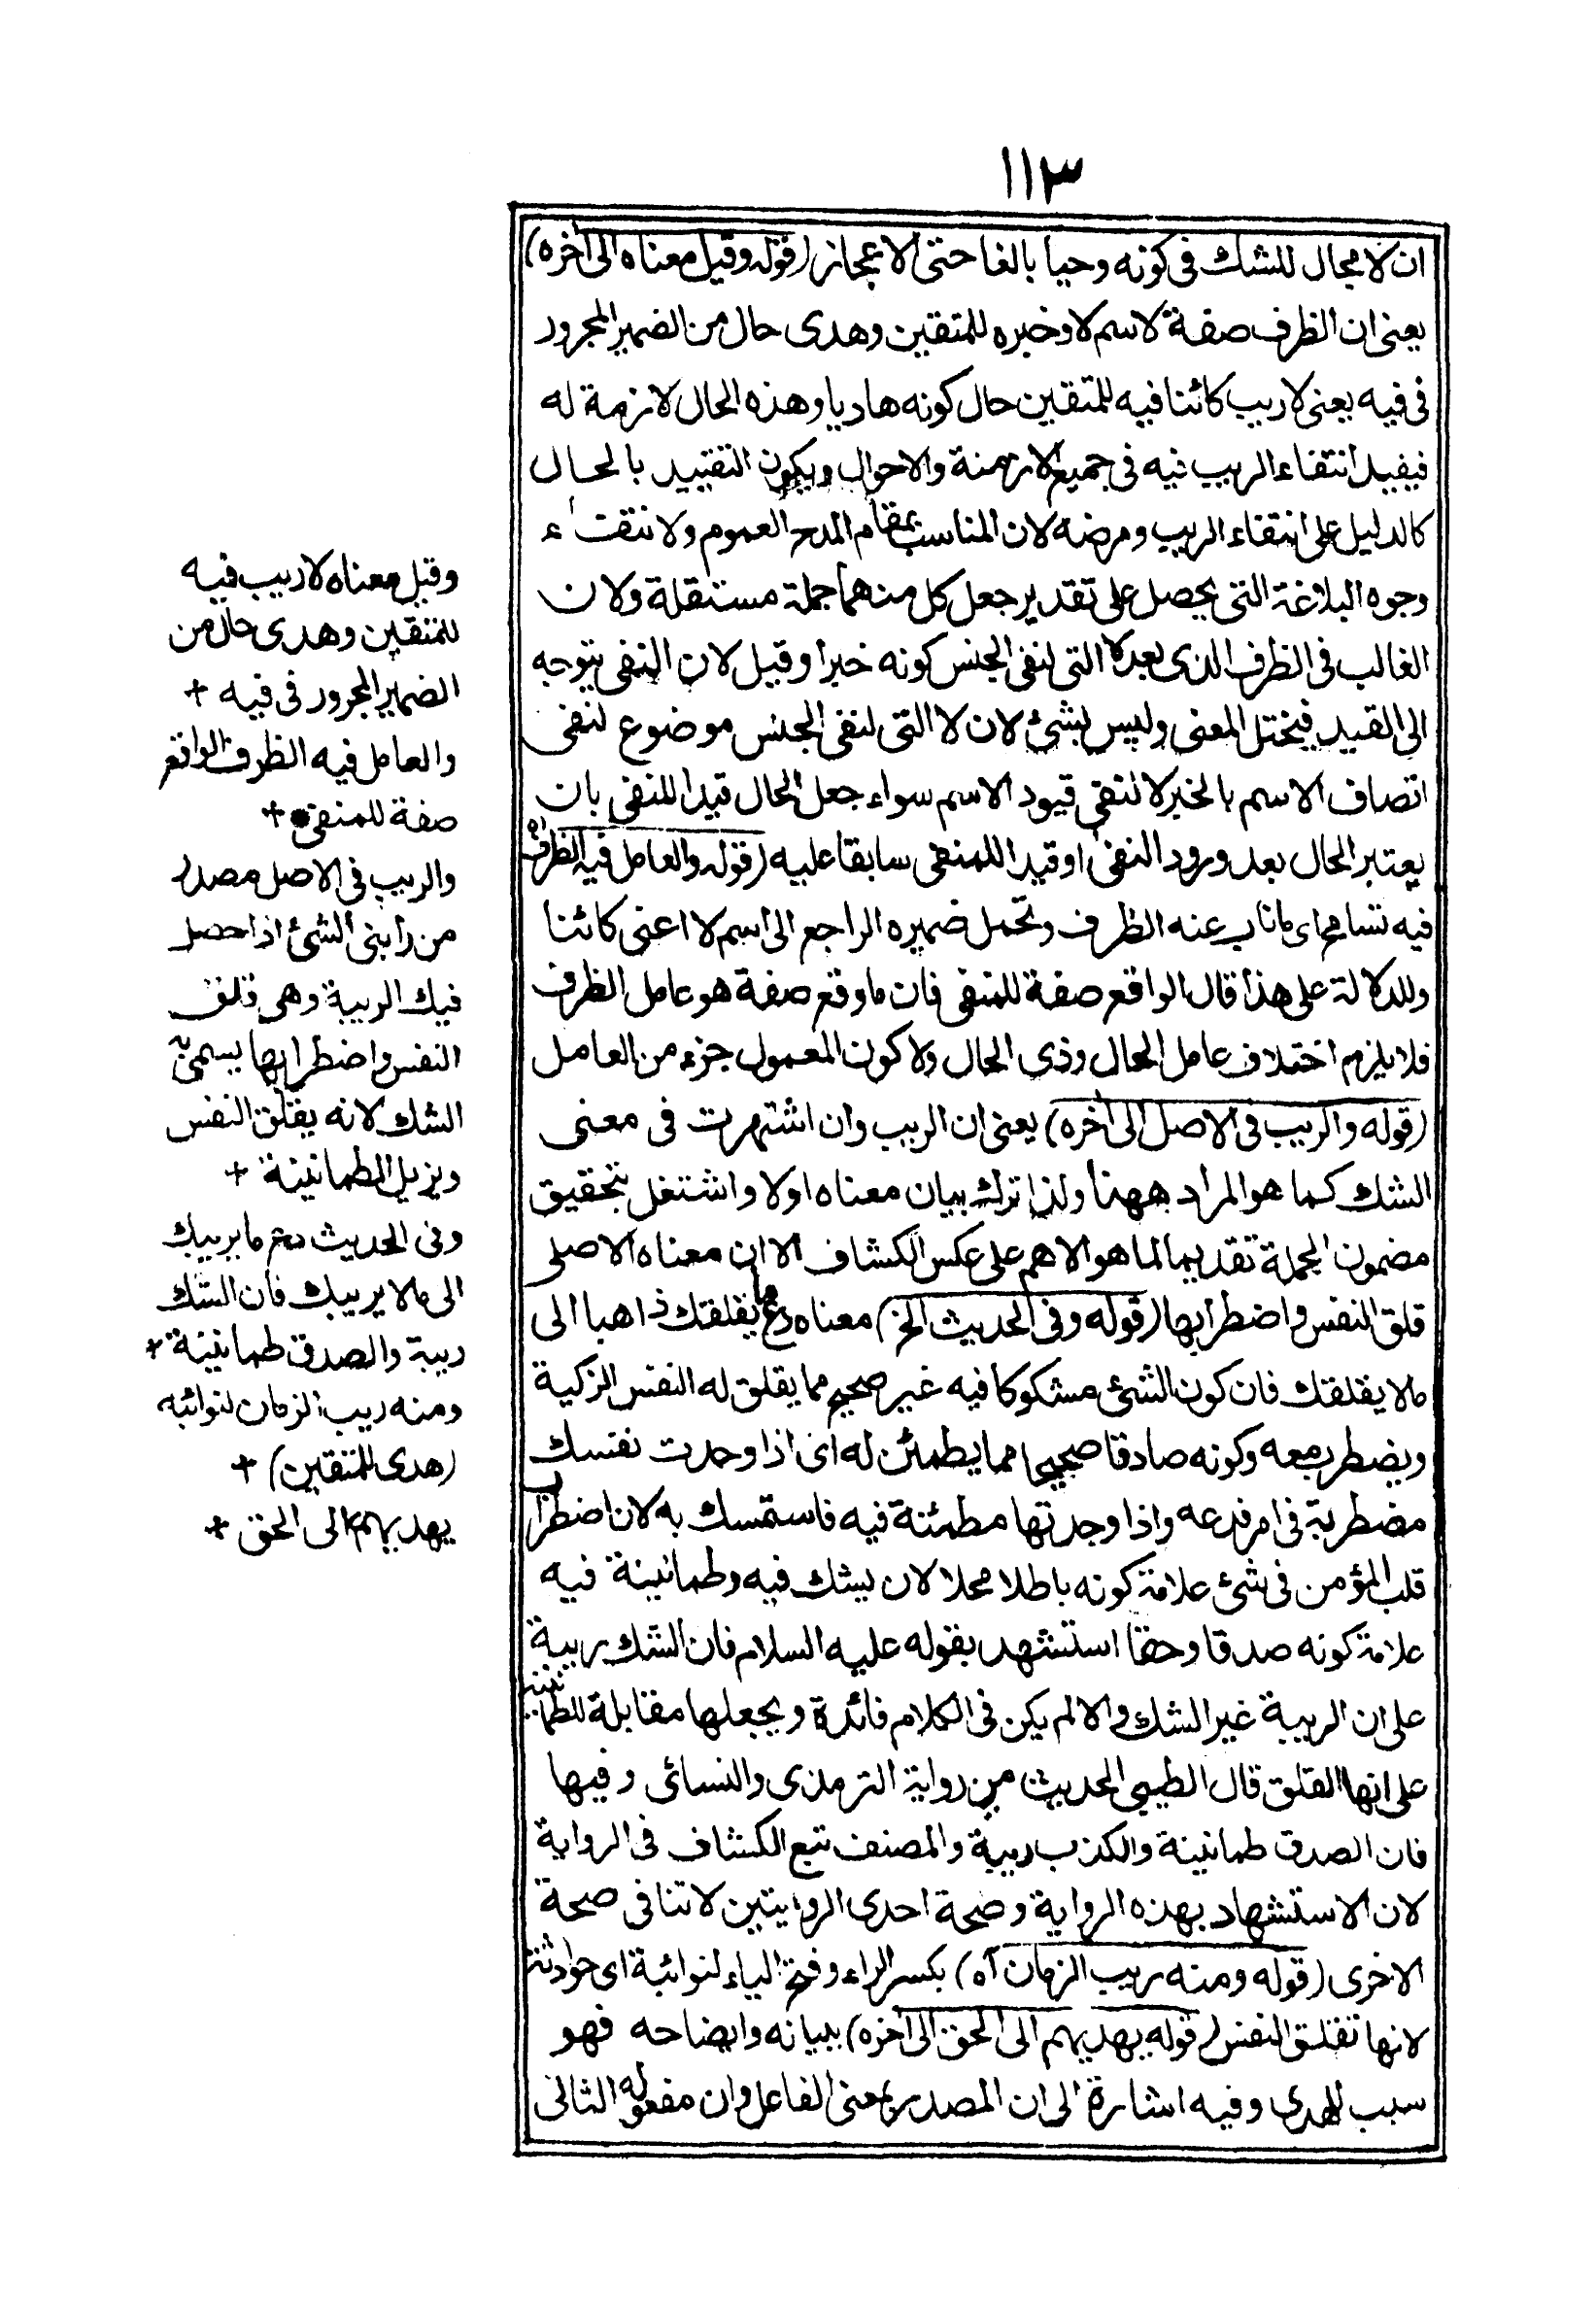 ١١٣
ان لا مجال للشك فى كونه وحيا بالغا حتى الاعجاز (قوله وقيل معناه الى آخره)
يعنى ان الظرف صفة لاسم لا وخبره للمتقين وهدى حال من الضمير المجرور
فى فيه يعنى لا ريب كائنا فيه للمتقين حال كونه هاديا وهذه الحال لازمة له
فيفيد انتفاء الريب فيه فى جميع الازمنة والاحوال ويكون التقييد بالحال
كالدليل على انتفاء الريب ومرضه لان المناسب بمقام المدح العموم ولانتفاء
وجوه البلاغة التى يحصل على تقدير جعل كل منهما جملة مستقلة ولان
الغالب فى الظرف الذى بعد لا التى لنفى الجنس كونه خبرا وقيل لان النفى يتوجه
الى القيد فيختل المعنى وليس بشئ لان لا التى لنفى الجنس موضوع لنفى
اتصاف الاسم بالخبر لا لنفى قيود الاسم سواء جعل الحال قيدا للنفى بان
يعتبر الحال بعد ورود النفى او قيدا للمنفى سابقا عليه (قوله والعامل فيه الظرف اه
فيه تسامح اى ما ناب عنه الظرف وتحمل ضميره الراجع الى اسم لا اعنى كائنا
وللدلالة على هذا قال الواقع صفة للمنفى فان ما وقع صفة هو عامل الظرف
فلا يلزم اختلاف عامل الحال وذى الحال ولا كون المعمول جزء من العامل
(قوله والريب فى الاصل الى آخره) يعنى ان الريب وان اشتهرت فى معنى
الشك كما هو المراد ههنا ولذا ترك بيان معناه اولا واشتغل بتحقيق
مضمون الجملة تقديما لما هو الاهم على عكس الكشاف الا ان معناه الاصلى
قلق النفس واضطرابها (قوله وفى الحديث الخ) معناه دع ما يقلقك ذاهبا الى
ما لا يقلقك فان كون الشئ مشكوكا فيه غير صحيح مما يقلق له النفس الزكية
ويضطرب معه وكونه صادقا صحيحا مما يطمئن له اى اذا وجدت نفسك
مضطربة فى امر فدعه واذا وجدتها مطمئنة فيه فاستمسك به لان اضطراب
قلب المؤمن فى شئ علامة كونه باطلا محلا لان يشك فيه وطمانينة فيه
علامة كونه صدقا وحقا استشهد بقوله عليه السلام فان الشك ريبة
على ان الريبة غير الشك والا لم يكن فى الكلام فائدة ويجعلها مقابلة للطمانينة
على انها القلق قال الطيبى الحديث من رواية الترمذى والنسائى وفيها
فان الصدق طمانينة والكذب ريبة والمصنف تبع الكشاف فى الرواية
لان الاستشهاد بهذه الرواية وصحة احدى الروايتين لا تنافى صحة
الاخرى (قوله ومنه ريب الزمان اه) بكسر الراء وفتح الياء لنوائبة اى حوادثه
لانها تقلق النفس (قوله يهديهم الى الحق الى آخره) ببيانه وايضاحه فهو
سبب للهدى وفيه اشارة الى ان المصدر بمعنى الفاعل وان مفعوله الثانى
وقيل معناه لا ريب فيه
للمتقين وهدى حال من
الضمير المجرور فى فيه +
والعامل فيه الظرف الواقع
صفة للمنفى +
والريب فى الاصل مصدر
من رابنى الشئ اذا حصل
فيك الريبة وهى قلق
النفس واضطرابها يسمى به
الشك لانه يقلق النفس
ويزيل الطمانينة +
وفى الحديث دع ما يريبك
الى ما لا يريبك فان الشك
ريبة والصدق طمانينة +
ومنه ريب الزمان لنوائبه
(هدى للمتقين) +
يهديهم الى الحق +